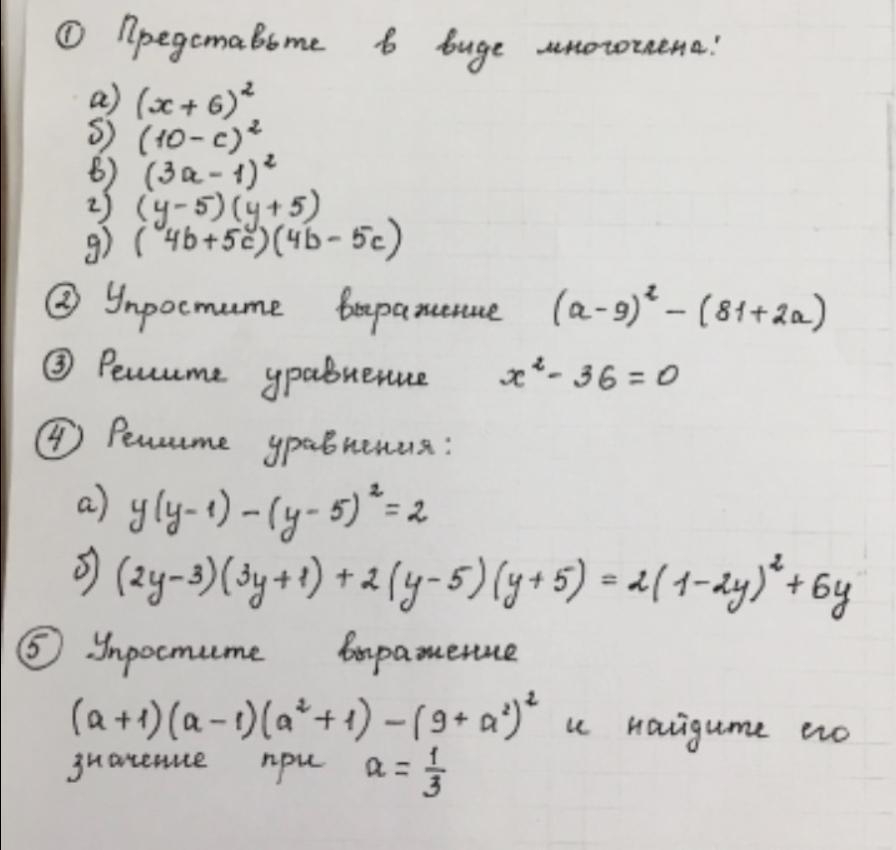 ① Представьте в виде многочлена:
а) (x + 6)²
б) (10 - c)²
в) (3a - 1)²
г) (y - 5)(y + 5)
д) (4b + 5c)(4b - 5c)
② Упростите выражение (a - 9)² - (81 + 2a)
③ Решите уравнение x² - 36 = 0
④ Решите уравнения:
а) y(y - 1) - (y - 5)² = 2
б) (2y - 3)(3y + 1) + 2(y - 5)(y + 5) = 2(1 - 2y)² + 6y
⑤ Упростите выражение
(a + 1)(a - 1)(a² + 1) - (9 + a²)² и найдите его
значение при a = 1/3